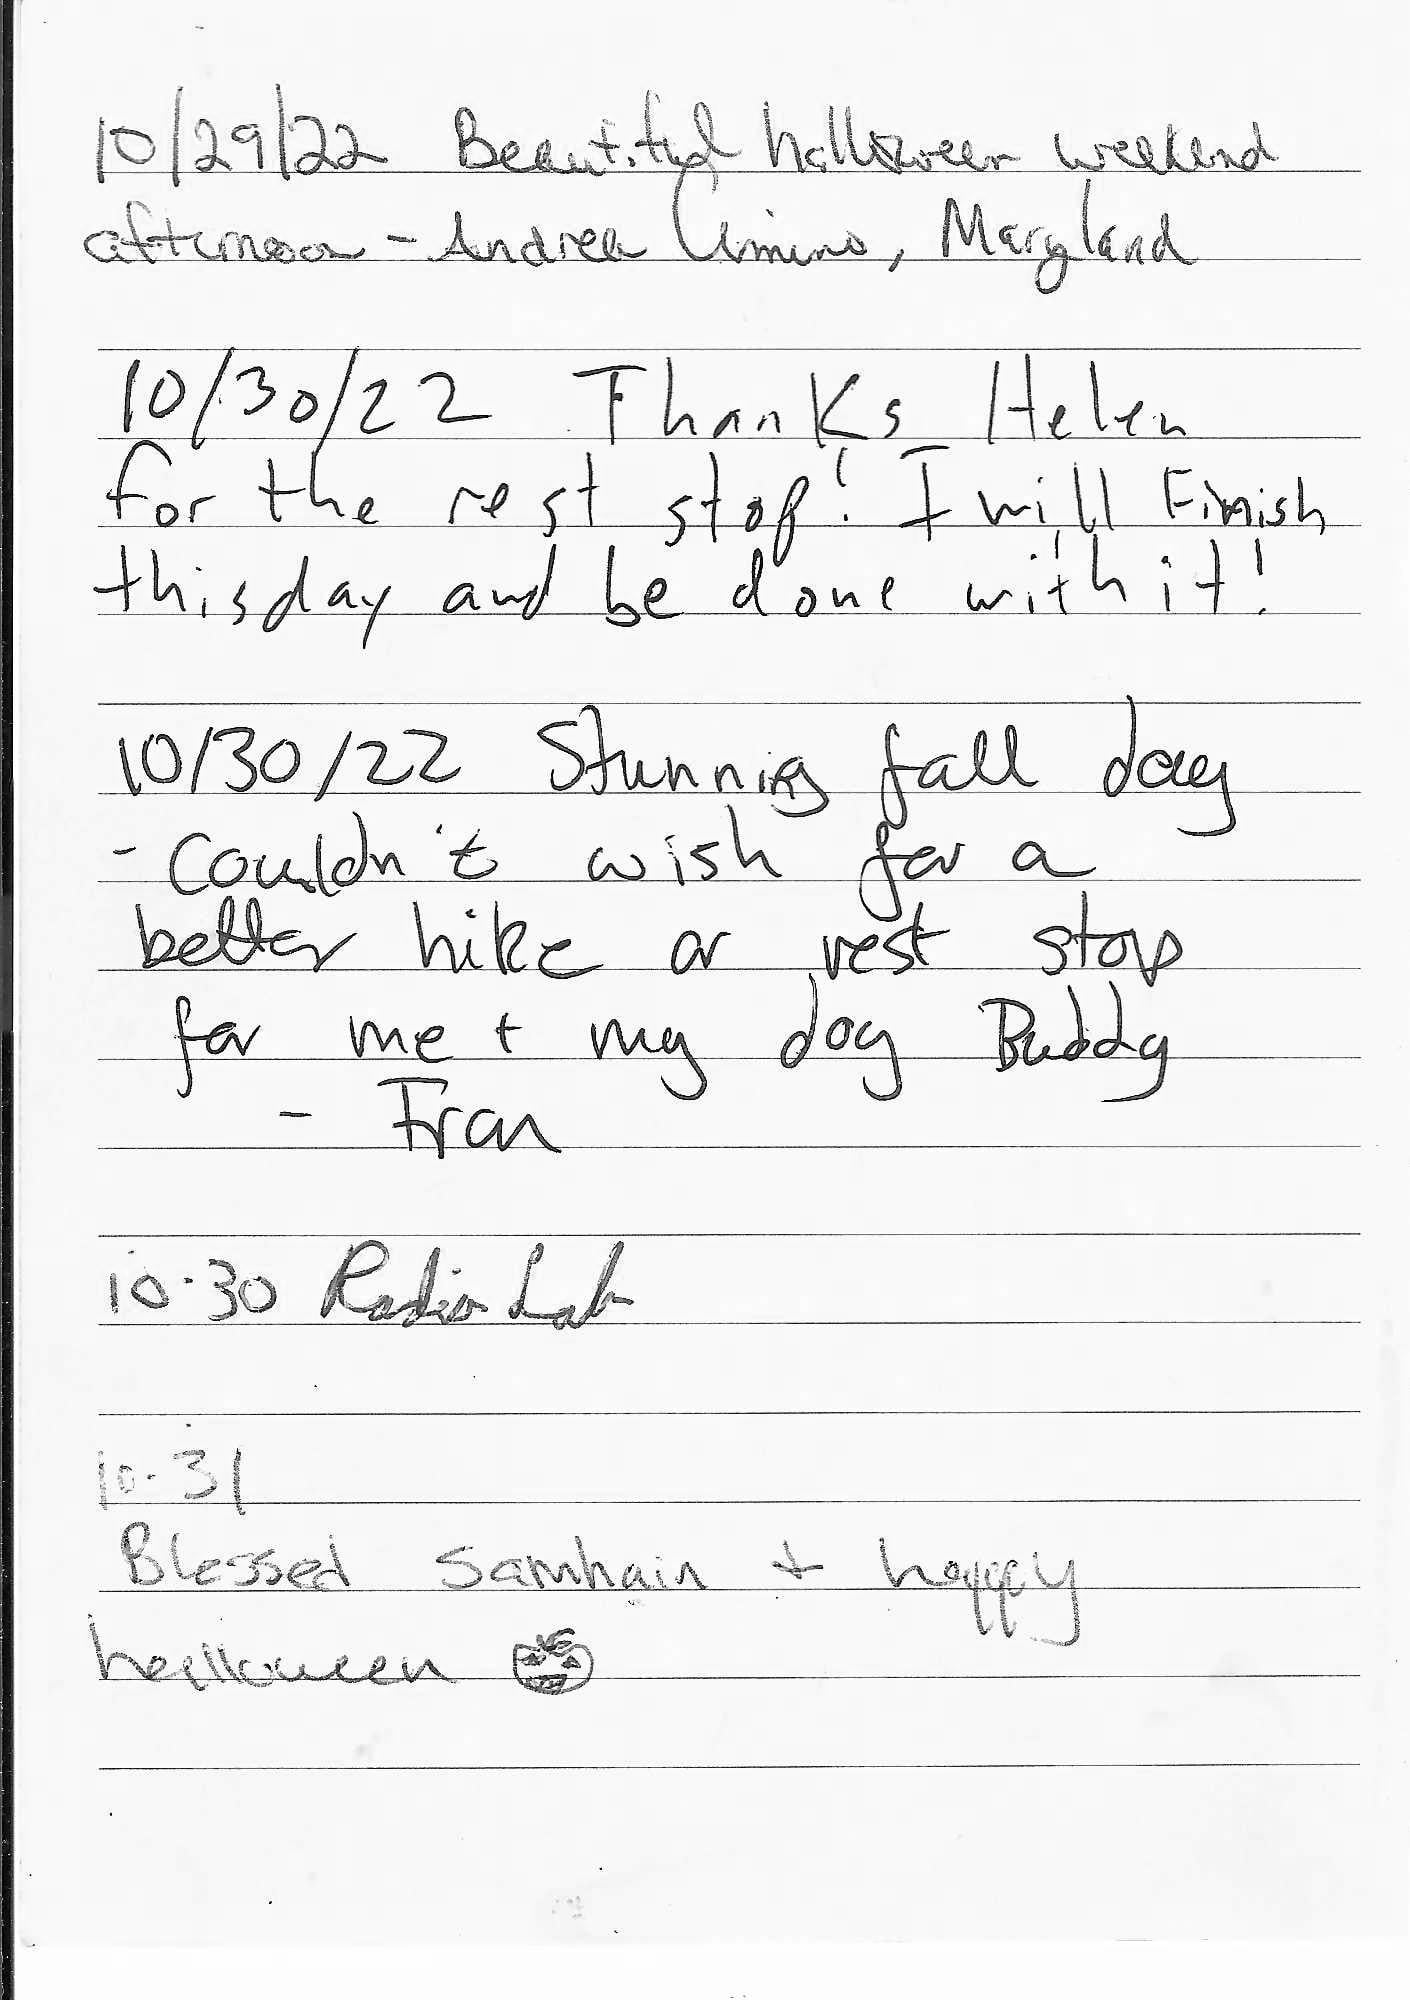 10/29/22 Beautiful halloween weekend
afternoon - Andrea , Maryland
10/30/22 Thanks Helen
for the rest stop! I will Finish
this day and be done with it!
10/30/22 Stunning fall day
- Couldn't wish for a
better hike or rest stop
for me + my dog Buddy
- Fran
10.30 Radio Lab
10.31
Blessed Samhain + happy
halloween